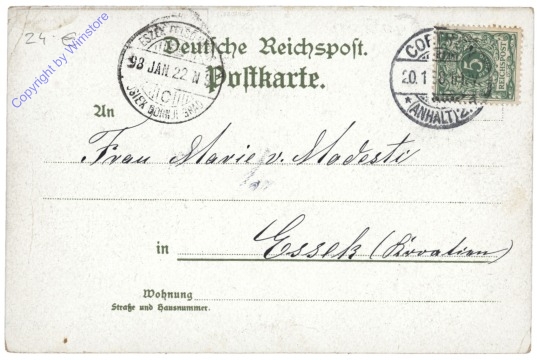 24.-
Copyright by Wimstore
Deutsche Reichspost.
Postkarte.
98 JAN 22 N
20.1
(ANHALT)
REICHSPOST
5
An
Frau Marie v. Modesti
in Essek (Kroatien)
Wohnung
Straße und Hausnummer.